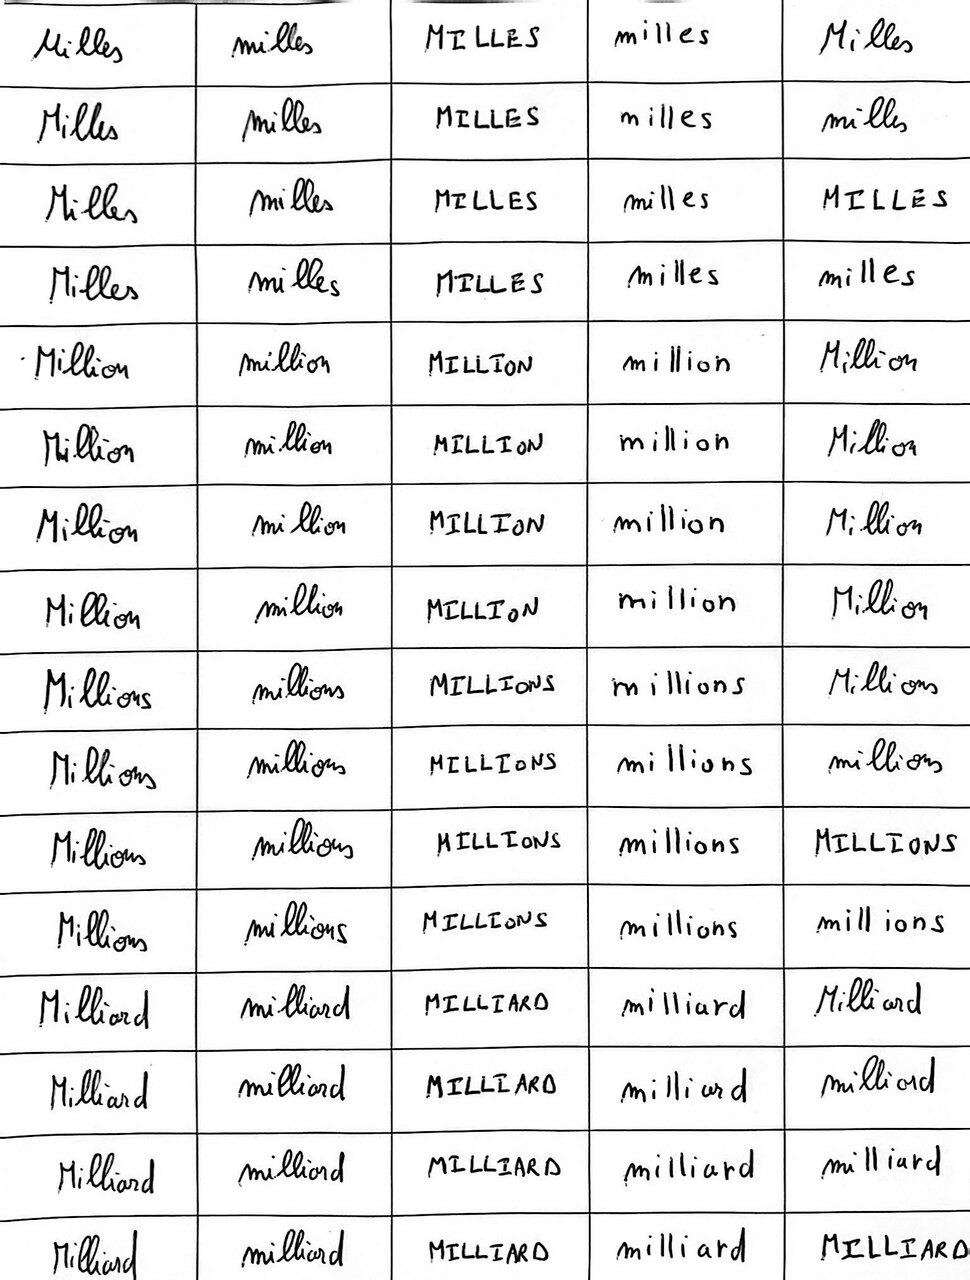 Milles milles MILLES milles Milles
Milles milles MILLES milles milles
Milles milles MILLES milles MILLES
Milles milles MILLES milles milles
Million million MILLION million Million
Million million MILLION million Million
Million million MILLION million Million
Million million MILLION million Million
Millions millions MILLIONS millions Millions
Millions millions MILLIONS millions millions
Millions millions MILLIONS millions MILLIONS
Millions millions MILLIONS millions millions
Milliard milliard MILLIARD milliard Milliard
Milliard milliard MILLIARD milliard milliard
Milliard milliard MILLIARD milliard milliard
Milliard milliard MILLIARD milliard MILLIARD